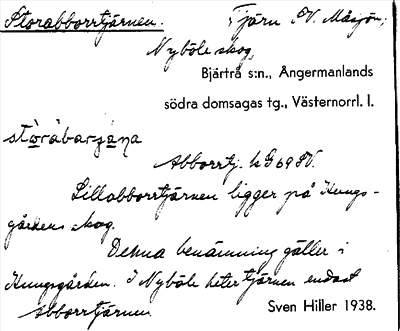 Storabborrtjärnen. Tjärn SV. Måsjön;
Nyböle skog
Bjärtrå s:n., Ångermanlands
södra domsagas tg., Västernorrl. l.
stòrabarjàna
Abborrtj. k G69SV.
Lillabborrtjärnen ligger på Kungs-
gårdens skog.
Denna benämning gäller i
Kungsgården. I Nyböle heter tjärnen endast
Abborrtjärnen.
Sven Hiller 1938.